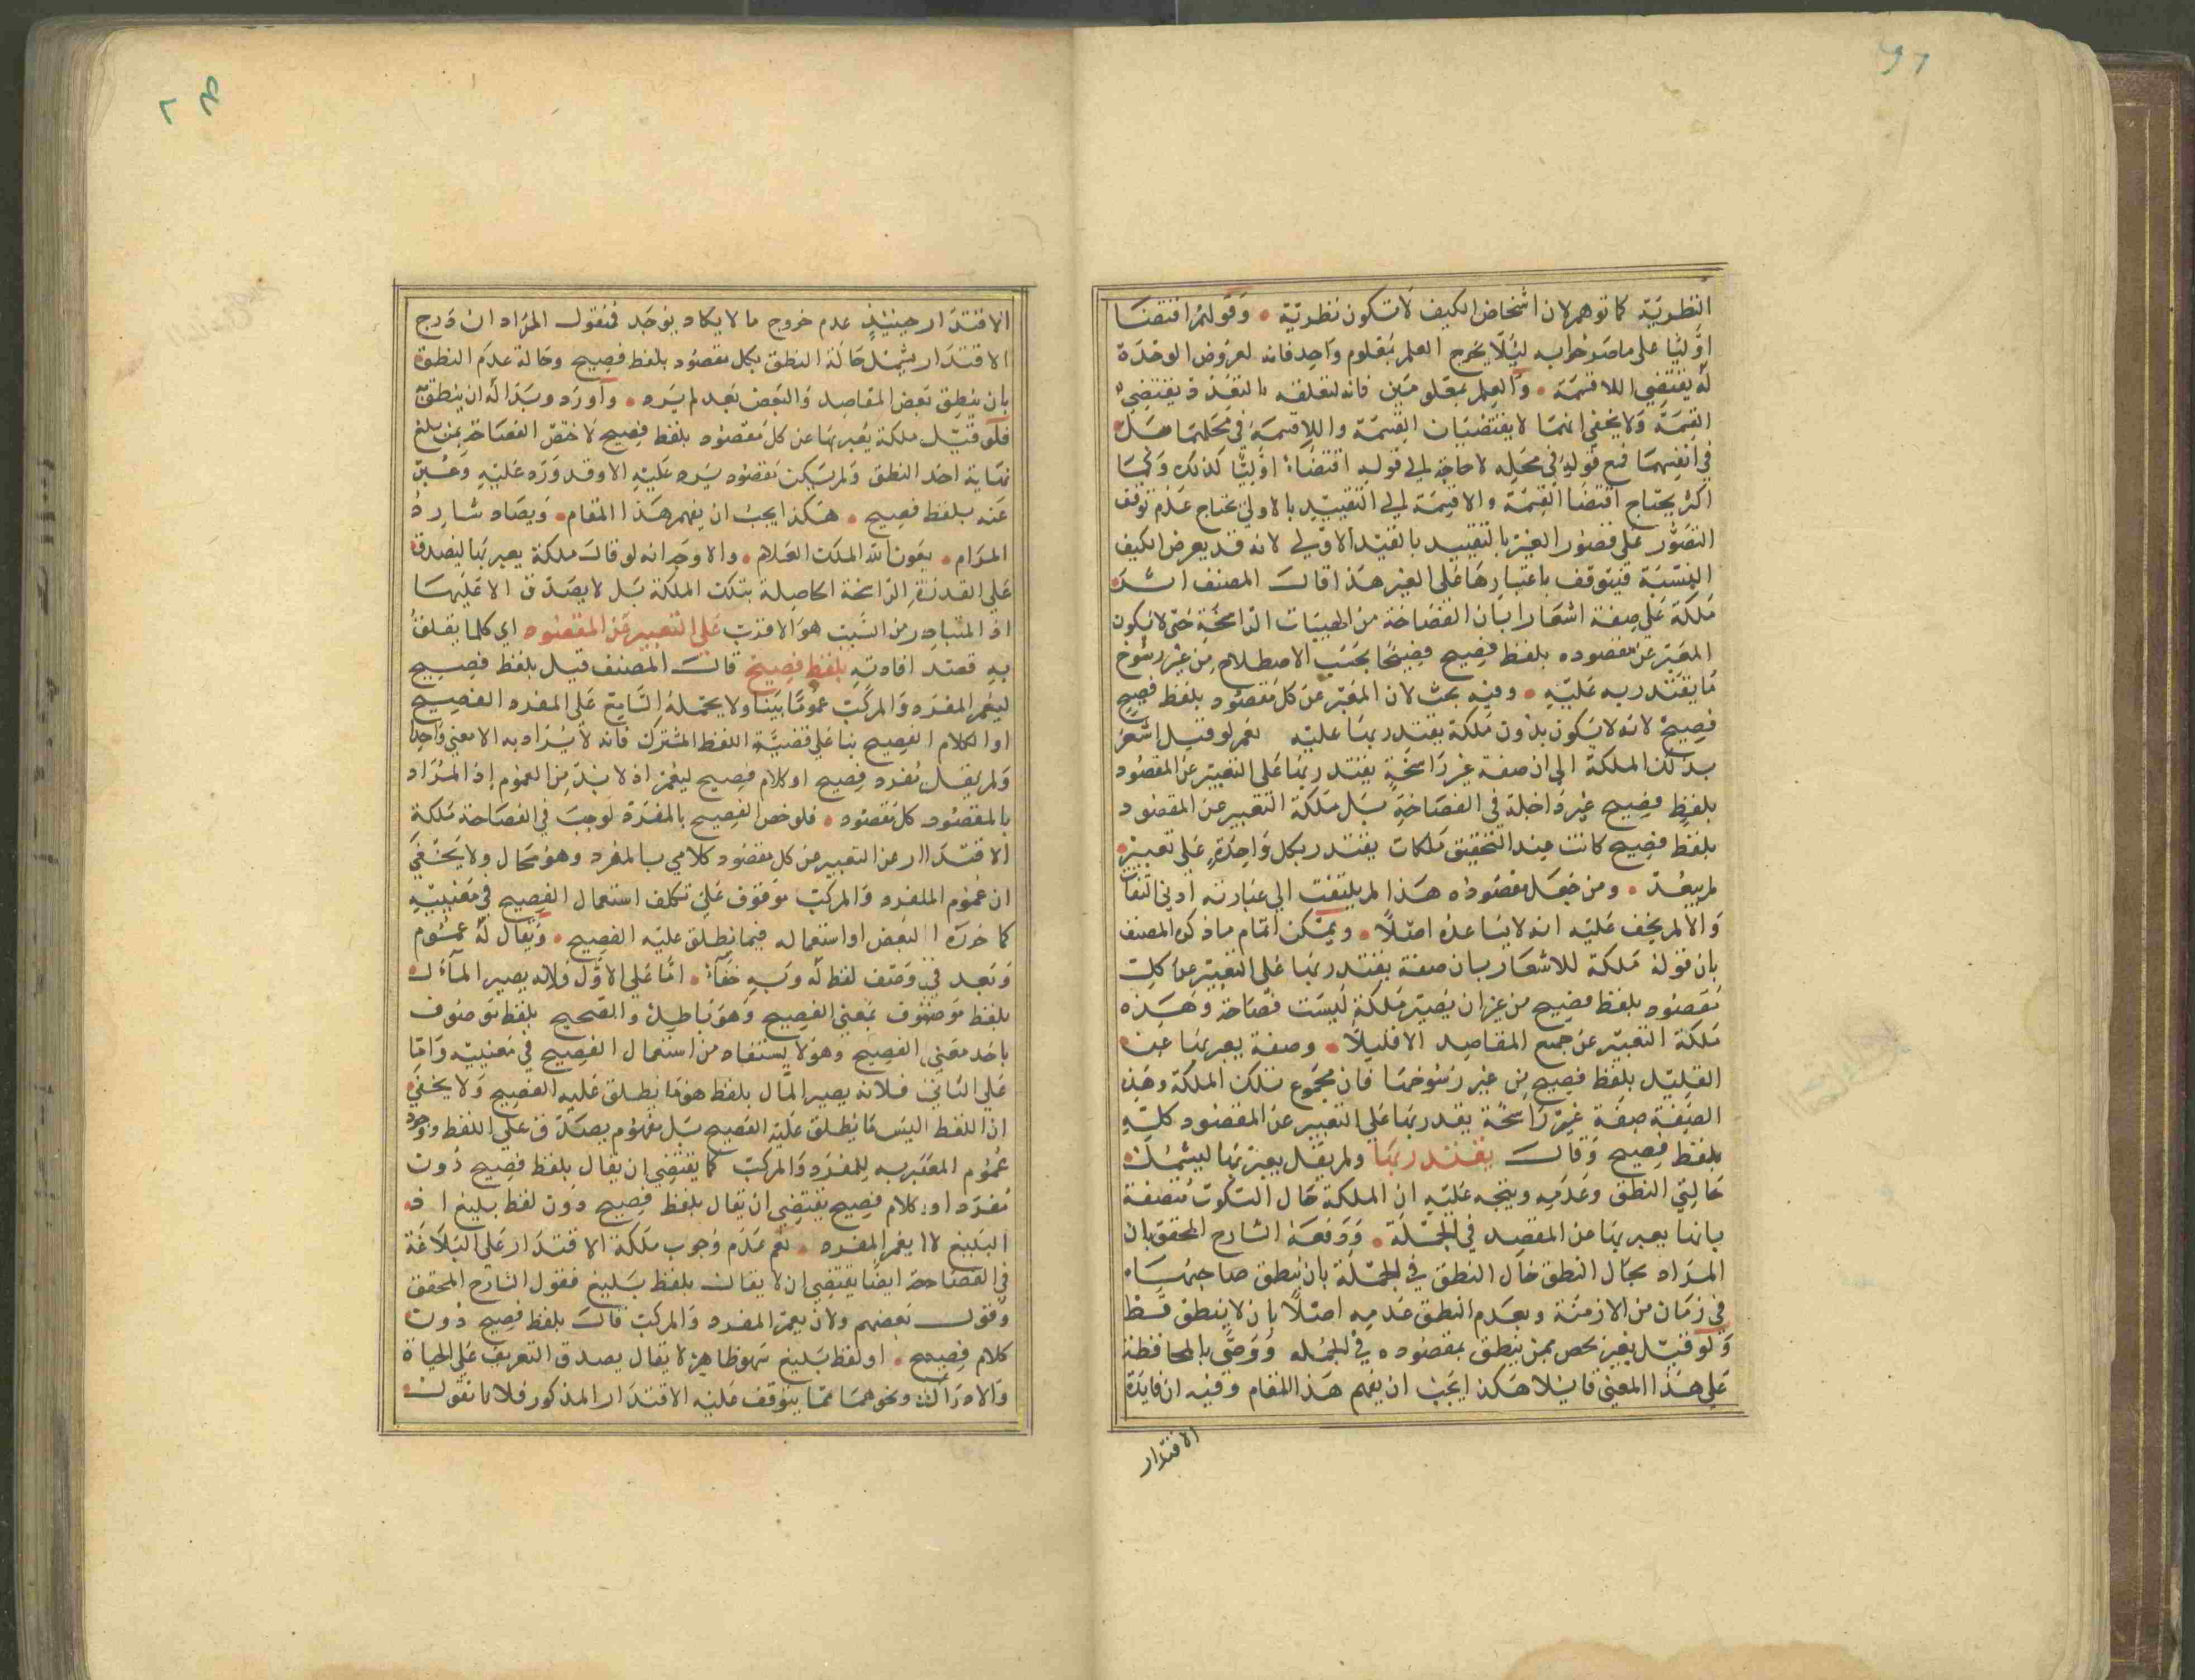 النظرية كما توهم لان اشخاص الكيف لا تكون نظرية • وقولهم اقتضا
اوليا على ما صرحوا به ليلا يخرج العلم بمعلوم واحد فانه لعروض الوحدة
له يقتضي اللاقسمة • والعلم بمعلومين فانه لتعلقه بالتعدد يقتضي
القسمة ولا يخفى انهما لا يقتضيان القسمة واللاقسمة في محلهما بل
في انفسهما فمع قوله في محله لا حاجة الى قوله اقتضاء اوليا كذلك وكما
اكثر يحتاج اقتضا القسمة والاقسمة الى التقييد بالاولي يحتاج عدم توقف
التصور على تصور الغير بالتقييد بالقيد الاولي لانه قد يعرض الكيف
النسبة فيتوقف باعتبارها على الغير هذا قال المصنف اشد
ملكة على صفة اشعارا بان الفصاحة من الهيئات الراسخة حتى لا يكون
المعبر عن مقصوده بلفظ فصيح فصيحا بحسب الاصطلاح من غير رسوخ
ما يقتدر به عليه • وفيه بحث لان المعبر عن كل مقصود بلفظ فصيح
فصيح لانه لا يكون بدون ملكة يقتدر بها عليه نعم لو قيل اشعر
بذلك الملكة الى ان صفة غير راسخة يقتدر بها على التعبير عن المقصود
بلفظ فصيح غير داخلة في الفصاحة بل ملكة التعبير عن المقصود
بلفظ فصيح كانت عند التحقيق ملكات يقتدر بكل واحدة على تعبير
لم يبعد • ومن جعل مقصوده هذا لم يلتفت الى عبارته ادنى التفات
والا لم يخف عليه انه لا يساعده اصلا • ويمكن اتمام ما ذكره المصنف
بان قوله ملكة للاشعار بان صفة يقتدر بها على التعبير عن كل
مقصود بلفظ فصيح من غير ان يصير ملكة ليست فصاحة وهذه
ملكة التعبير عن جميع المقاصد الا قليلا • وصفة يعبر بها عن
القليل بلفظ فصيح من غير رسوخها فان مجموع تلك الملكة وهذه
الصفة صفة غير راسخة يقدر بها على التعبير عن المقصود كله
بلفظ فصيح وقال يقتدر بها ولم يقل يعبر بها ليشمل
حالتي النطق وعدمه ويتجه عليه ان الملكة حال السكوت متصفة
بانها يعبر بها عن المقصد في الجملة • ودفعه الشارح المحقق بان
المراد بحال النطق حال النطق في الجملة بان ينطق صاحبها
في زمان من الازمنة وبعدم النطق عدمه اصلا بان لا ينطق قط
ولو قيل يعبر يخص بمن ينطق بمقصوده في الجمله ووصى بالمحافظة
على هذا المعنى قائلا هكذا يجب ان يفهم هذا المقام وفيه ان فايدة
الاقتدار
الاقتدار حينئذ عدم خروج ما لا يكاد يوجد فنقول المراد ان درج
الاقتدار يشمل حالة النطق بكل مقصود بلفظ فصيح وحالة عدم النطق
بان ينطق بعض المقاصد والبعض بعد لم يرد • واورد وبدا له ان ينطق
فلو قيل ملكة يعبر بها عن كل مقصود بلفظ فصيح لاختص الفصاحة بمن بلغ
نهاية احد النطق ولم يبق مقصود يرد عليه الا وقد ورد عليه وعبر
عنه بلفظ فصيح • هكذا يجب ان يفهم هذا المقام • ويصاد شارد
المرام • بعون الله الملك العلام • والاوجه انه لو قال ملكة يعبر بها ليصدق
على القدرة الراسخة الحاصلة بتلك الملكة بل لا يصدق الا عليها
اذ المتبادر من السبب هو الاقرب على التعبير عن المقصود اي كلما يتعلق
به قصد افادته بلفظ فصيح قال المصنف قيل بلفظ فصيح
ليعم المفرد والمركب عموما بينا ولا يحتمله السامع على المفرد الفصيح
او الكلام الفصيح بنا على قضية اللفظ المشترك فانه لا يراد به الا معنى واحد
ولم يقل مفرد فصيح او كلام فصيح ليعم اذ لا بد من العموم اذ المراد
بالمقصود كل مقصود • فلو خص الفصيح بالمفرد لوجب في الفصاحة ملكة
الاقتداار عن التعبير عن كل مقصود كلامي بالمفرد وهو محال ولا يخفى
ان عموم الملفرد والمركب موقوف على تكلف استعمال الفصيح في معنييه
كما حرره البعض او استعماله فيما يطلق عليه الفصيح • ويقال له عموم
وبعد في وصف لفظ له وبه خفاء • اما على الاول فلانه يصير المآل
بلفظ موصوف بمعنى الفصيح وهو باطل والصحيح بلفظ موصوف
باحد معنى الفصيح وهو لا يستفاد من استعمال الفصيح في معنييه واما
على الثاني فلانه يصير المآل بلفظ هو ما يطلق عليه الفصيح ولا يخفى
ان اللفظ اليس ما يطلق عليه الفصيح بل مفهوم يصدق على اللفظ ووجود
عموم المعتبر به للمفرد والمركب كما يقتضي ان يقال بلفظ فصيح دون
مفرد او كلام فصيح يقتضي ان يقال بلفظ فصيح دون لفظ بليغ اذ
البليغ لا يعم المفرد • نعم عدم وجوب ملكة الاقتدار على البلاغة
في الفصاحة ايضا يقتضي ان لا يقال بلفظ بليغ فقول الشارح المحقق
وقول بعضهم ولان يعم المفرد والمركب قال بلفظ فصيح دون
كلام فصيح • او لفظ بليغ سهو ظاهر لا يقال يصدق التعريف على الحياة
والادراك ونحوهما مما يتوقف عليه الاقتدار المذكور فلانا نقول